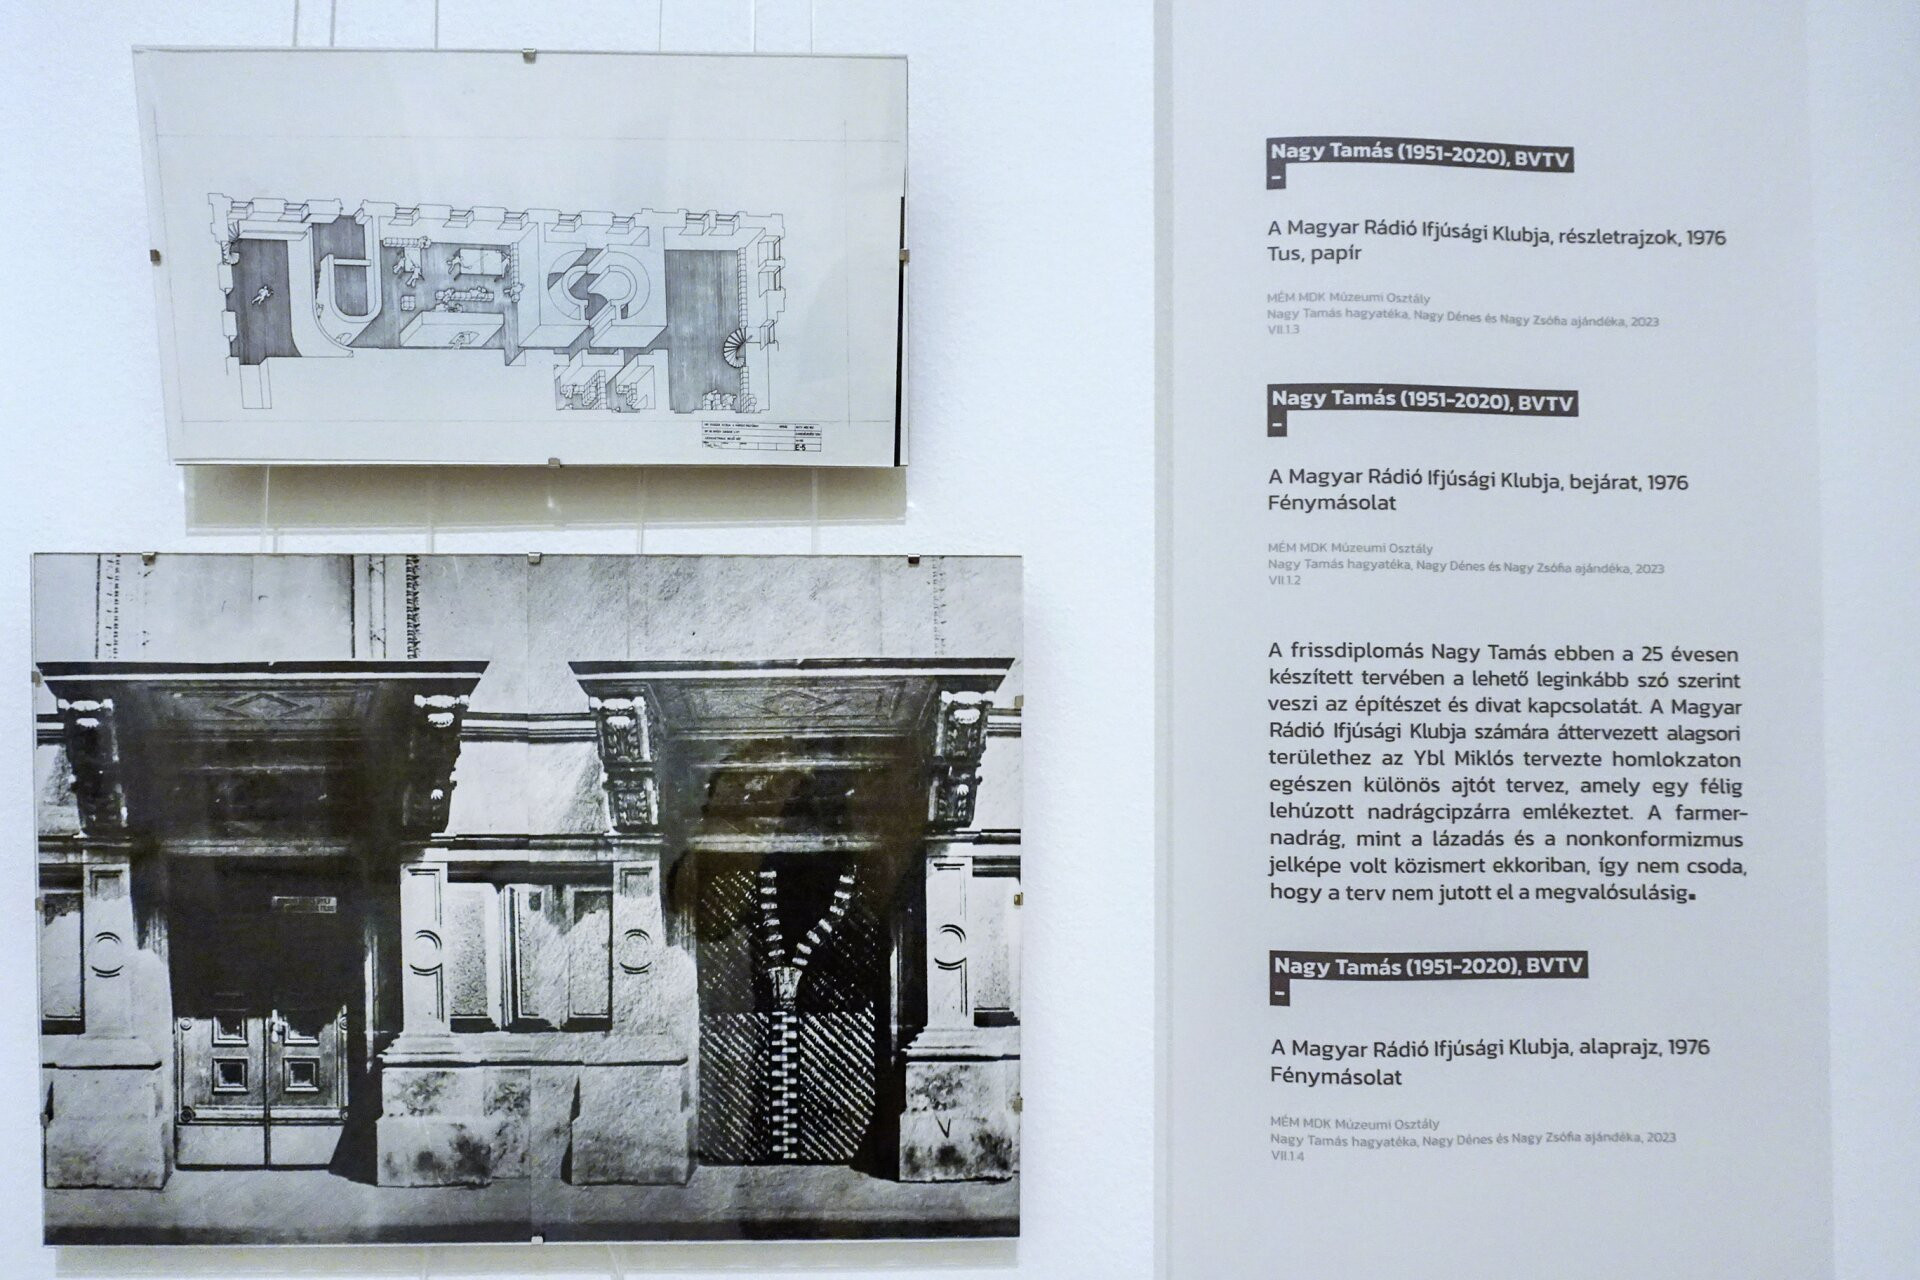 Nagy Tamás (1951-2020), BVTV
-
A Magyar Rádió Ifjúsági Klubja, részletrajzok, 1976
Tus, papír
MÉM MDK Múzeumi Osztály
Nagy Tamás hagyatéka, Nagy Dénes és Nagy Zsófia ajándéka, 2023
VII.1.3
Nagy Tamás (1951-2020), BVTV
-
A Magyar Rádió Ifjúsági Klubja, bejárat, 1976
Fénymásolat
MÉM MDK Múzeumi Osztály
Nagy Tamás hagyatéka, Nagy Dénes és Nagy Zsófia ajándéka, 2023
VII.1.2
A frissdiplomás Nagy Tamás ebben a 25 évesen
készített tervében a lehető leginkább szó szerint
veszi az építészet és divat kapcsolatát. A Magyar
Rádió Ifjúsági Klubja számára áttervezett alagsori
területhez az Ybl Miklós tervezte homlokzaton
egészen különös ajtót tervez, amely egy félig
lehúzott nadrágcipzárra emlékeztet. A farmer-
nadrág, mint a lázadás és a nonkonformizmus
jelképe volt közismert ekkoriban, így nem csoda,
hogy a terv nem jutott el a megvalósulásig.
Nagy Tamás (1951-2020), BVTV
-
A Magyar Rádió Ifjúsági Klubja, alaprajz, 1976
Fénymásolat
MÉM MDK Múzeumi Osztály
Nagy Tamás hagyatéka, Nagy Dénes és Nagy Zsófia ajándéka, 2023
VII.1.4
E-5